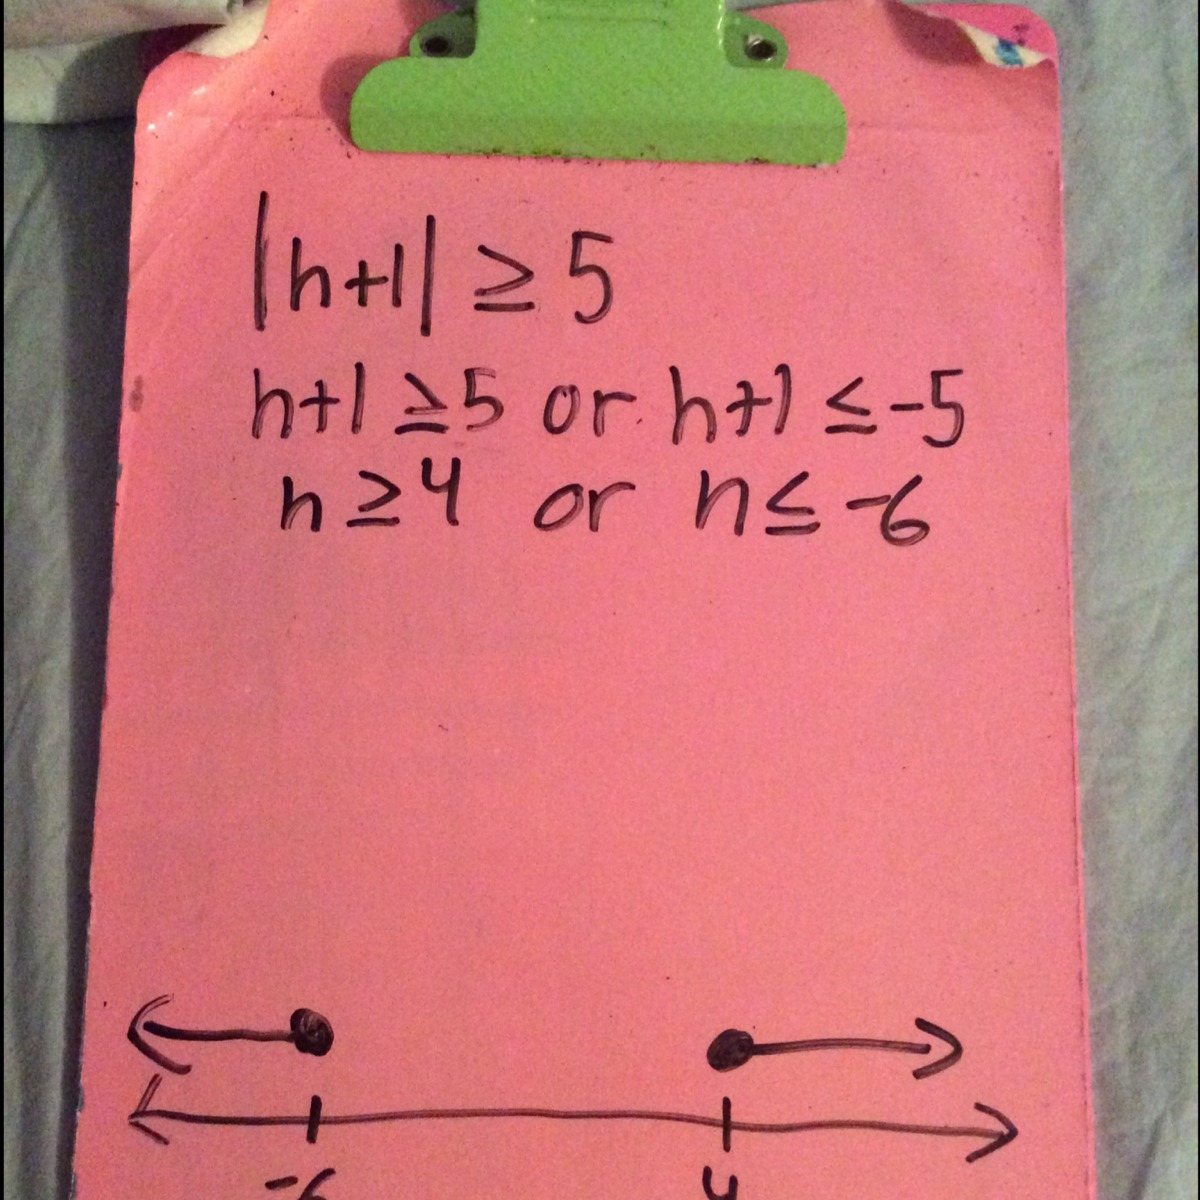 |h+1| ≥ 5
h+1 ≥ 5 or h+1 ≤ -5
h ≥ 4 or h ≤ -6
-6 4